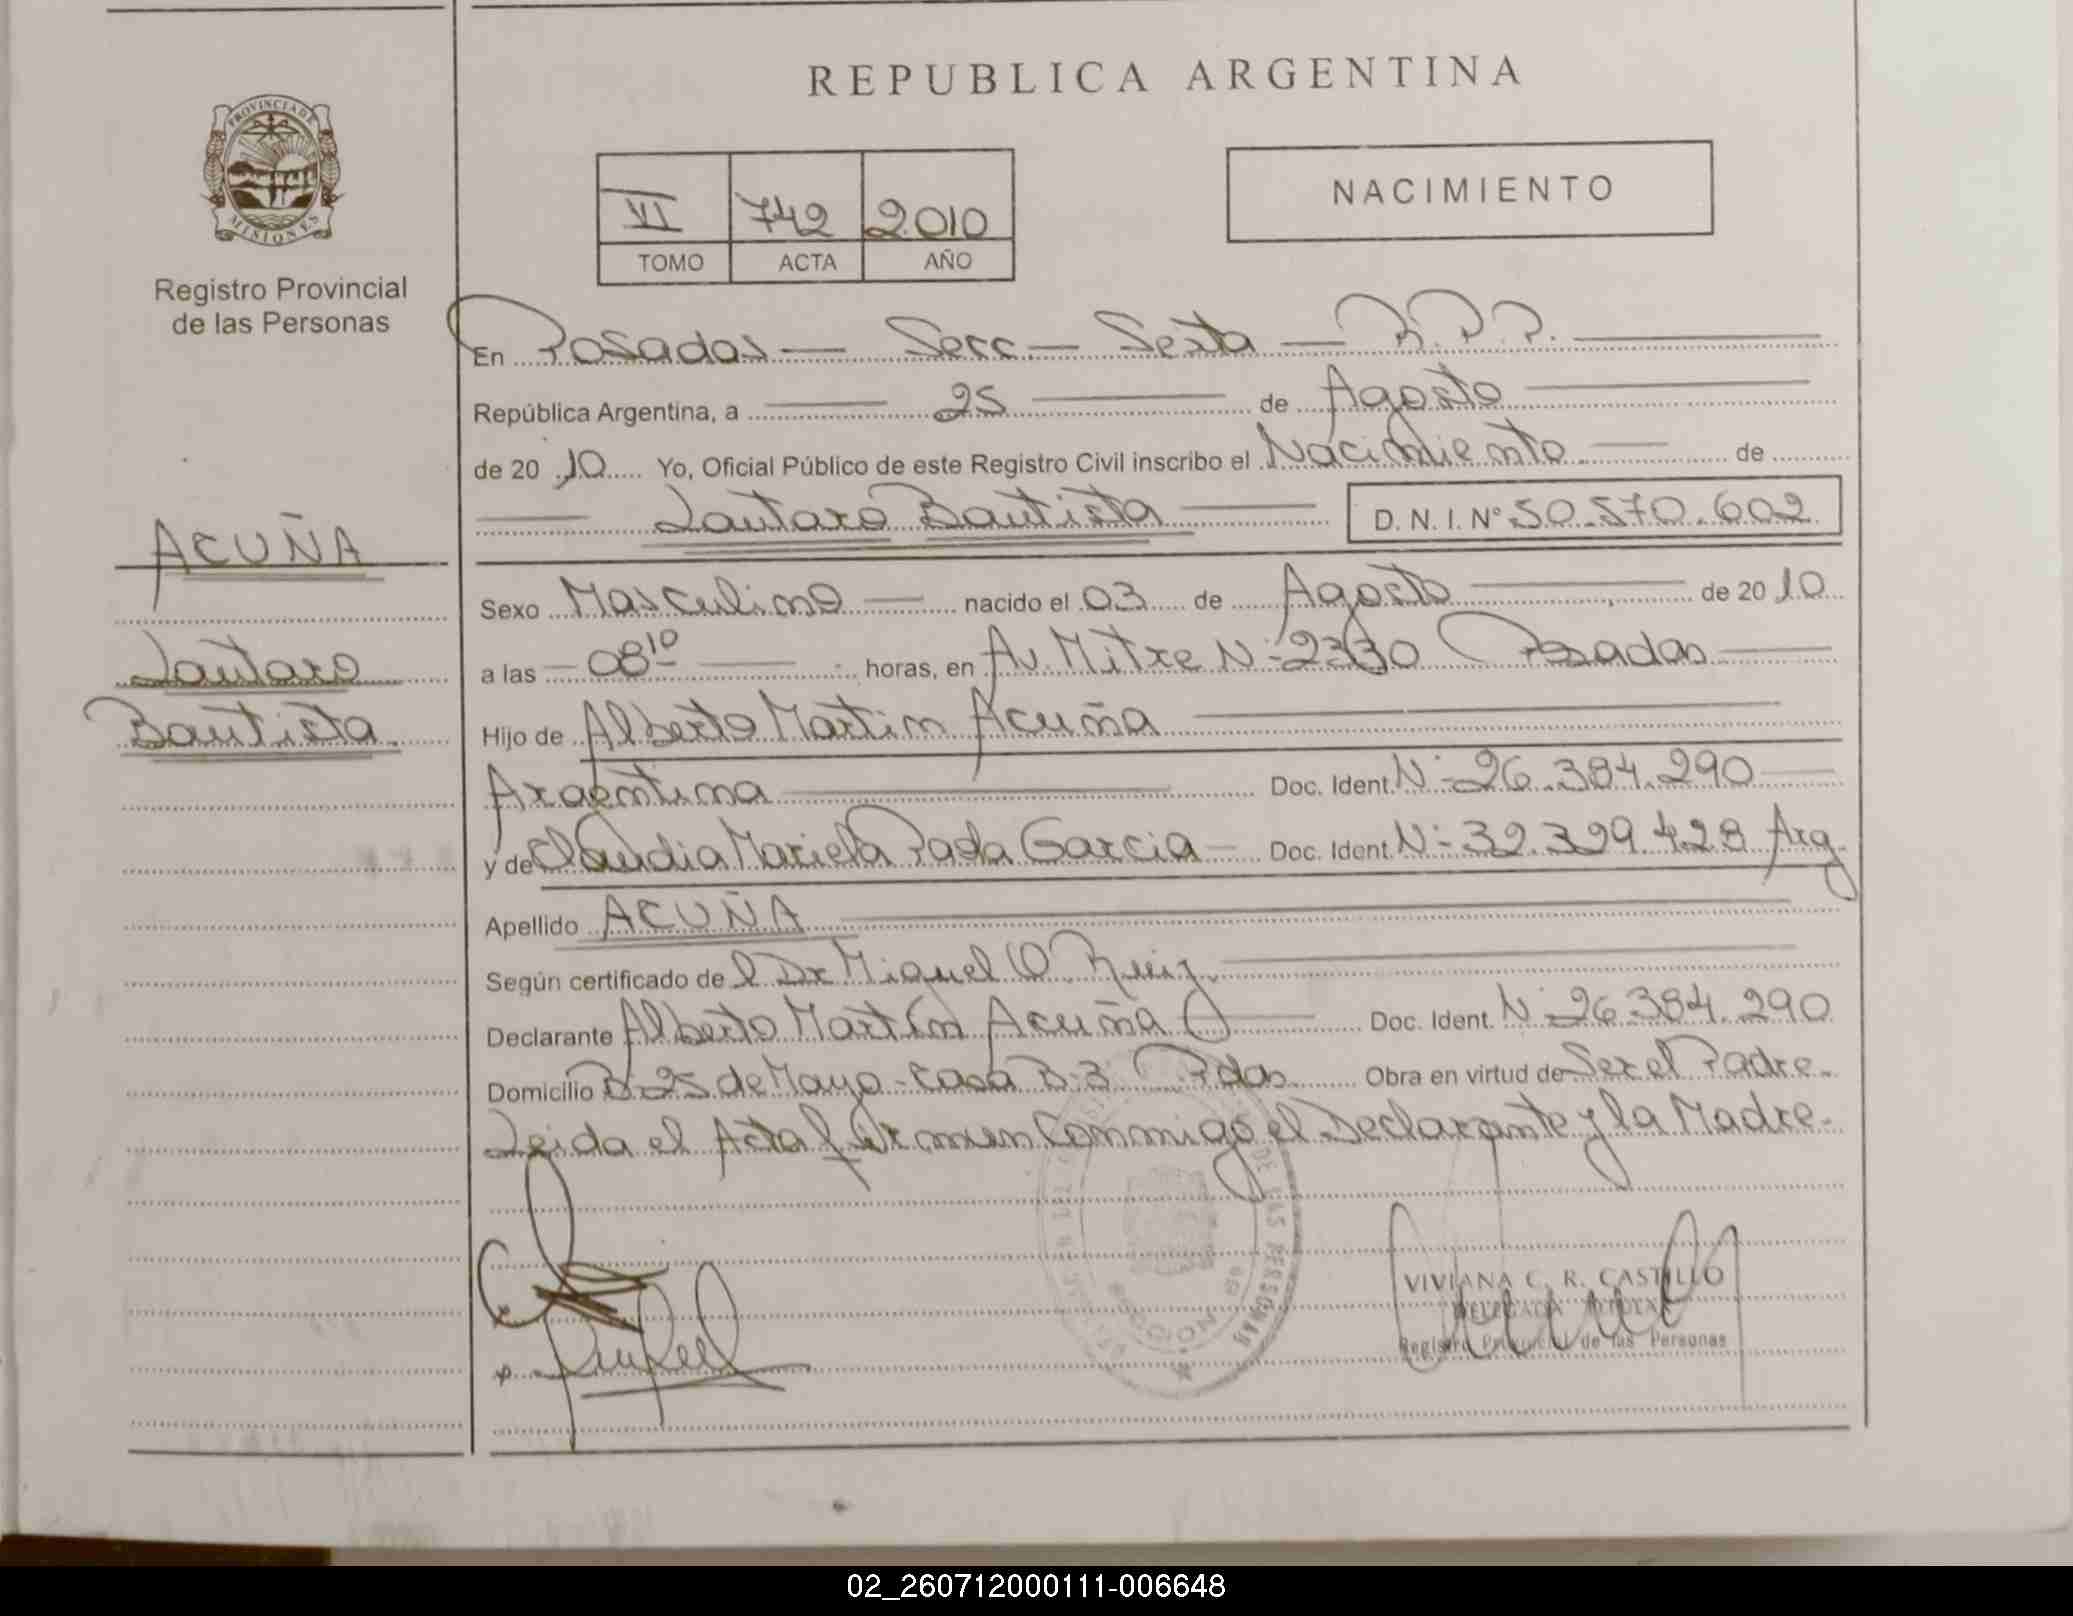 REPUBLICA ARGENTINA
PROVINCIA DE
MISIONES
Registro Provincial
de las Personas
VI 742 2010
TOMO ACTA AÑO
NACIMIENTO
En Posadas — Secc — Sexta — R.P.P.
República Argentina, a 25 de Agosto
de 2010 Yo, Oficial Público de este Registro Civil inscribo el Nacimiento de
Lautaro Bautista D.N.I. Nº 50.570.602
ACUÑA
Lautaro
Bautista
Sexo Masculino nacido el 03 de Agosto de 2010
a las 08 10 horas, en Av. Mitre Nº 2330 Posadas
Hijo de Alberto Martin Acuña
Argentina Doc. Ident. Nº 26.384.290
y de Claudia Mariela Garcia Doc. Ident. Nº 32.329.428 Arg
Apellido ACUÑA
Según certificado de l Dr Miguel O Ruiz
Declarante Alberto Martín Acuña Doc. Ident. Nº 26.384.290
Domicilio Bº 25 de Mayo - Casa B-3 Pdas Obra en virtud de Ser el Padre.
Leida el Acta firman Conmigo el Declarante y la Madre.
DE LAS PERSONAS
VIVIANA C. R. CASTILLO
DELEGADA TITULAR
Registro Provincial de las Personas
02_260712000111-006648